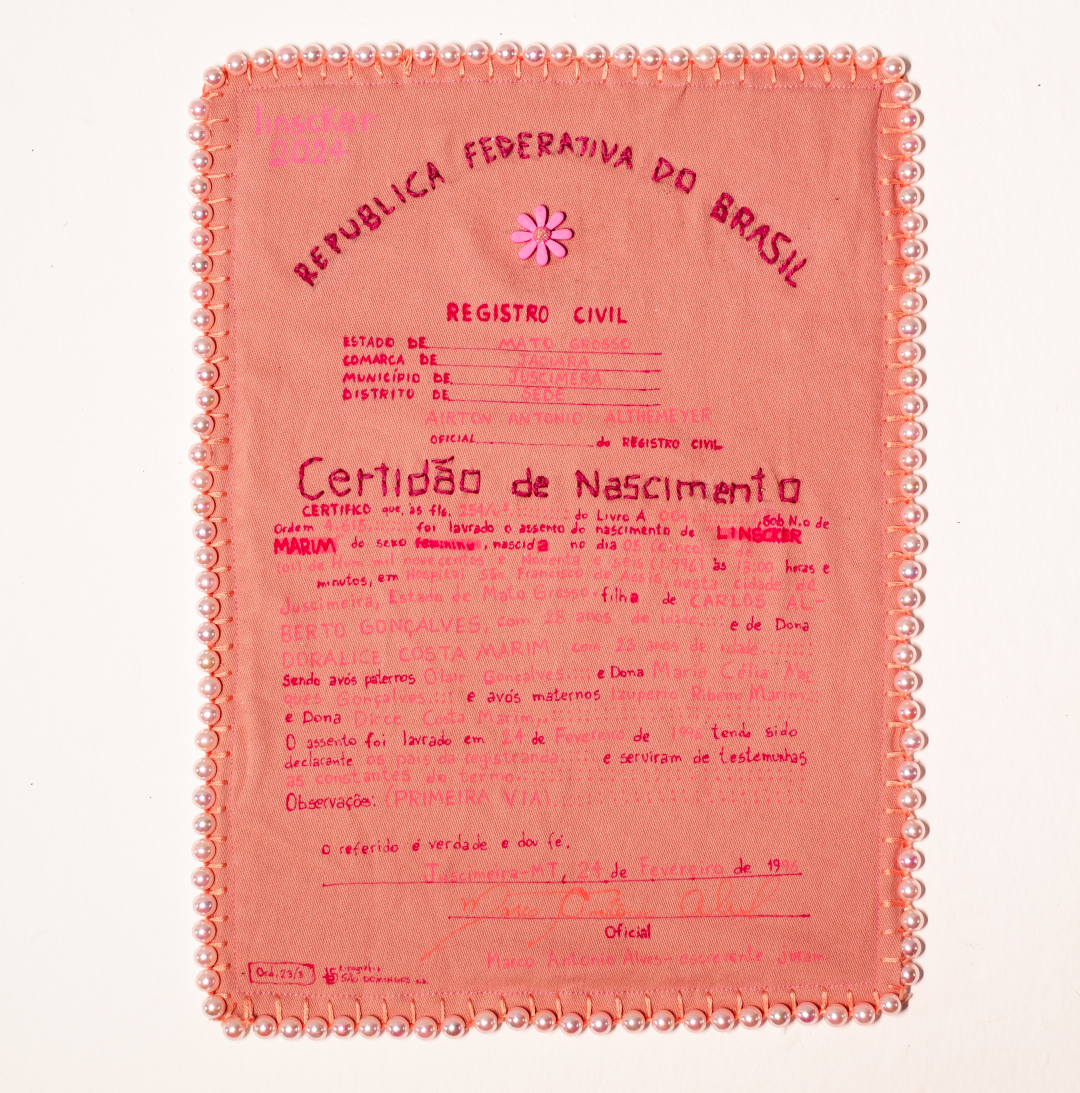 linscker
2024
REPUBLICA FEDERATIVA DO BRASIL
REGISTRO CIVIL
ESTADO DE MATO GROSSO
COMARCA DE JACIARA
MUNICÍPIO DE JUSCIMERA
DISTRITO DE SEDE
AIRTON ANTONIO ALTHEMEYER
OFICIAL do REGISTRO CIVIL
Certidão de Nascimento
CERTIFICO que, às fls. 254/ do Livro A 004 , Sob N.o de
Ordem 4.618 foi lavrado o assento do nascimento de LINSCKER
MARIM do sexo feminino, nascida no dia 05 (cinco) de
de Hum mil novecentos e Noventa e seis (1.996) às 13:00 horas e
minutos, em Hospital São Francisco de Assis, nesta cidade de
Juscimeira, Estado de Mato Grosso, filha de CARLOS AL-
BERTO GONÇALVES, com 28 anos de idade.:::: e de Dona
DORALICE COSTA MARIM com 23 anos de idade
Sendo avós paternos Olair Gonçalves.:::: e Dona Maria Célia Mar
ques Gonçalves.:::: e avós maternos Izuperio Ribeiro Marim
e Dona Dirce Costa Marim
O assento foi lavrado em 24 de Fevereiro de 1996 tendo sido
declarante os pais da registranda.:::: e serviram de testemunhas
as constantes do termo
Observações: (PRIMEIRA VIA)
o referido é verdade e dou fé.
Juscimeira-MT, 24 de Fevereiro de 1996
Oficial
Marco Antonio Alves - escrevente Juram
Ord. 23/3 SÃO DOMINGOS s.a.